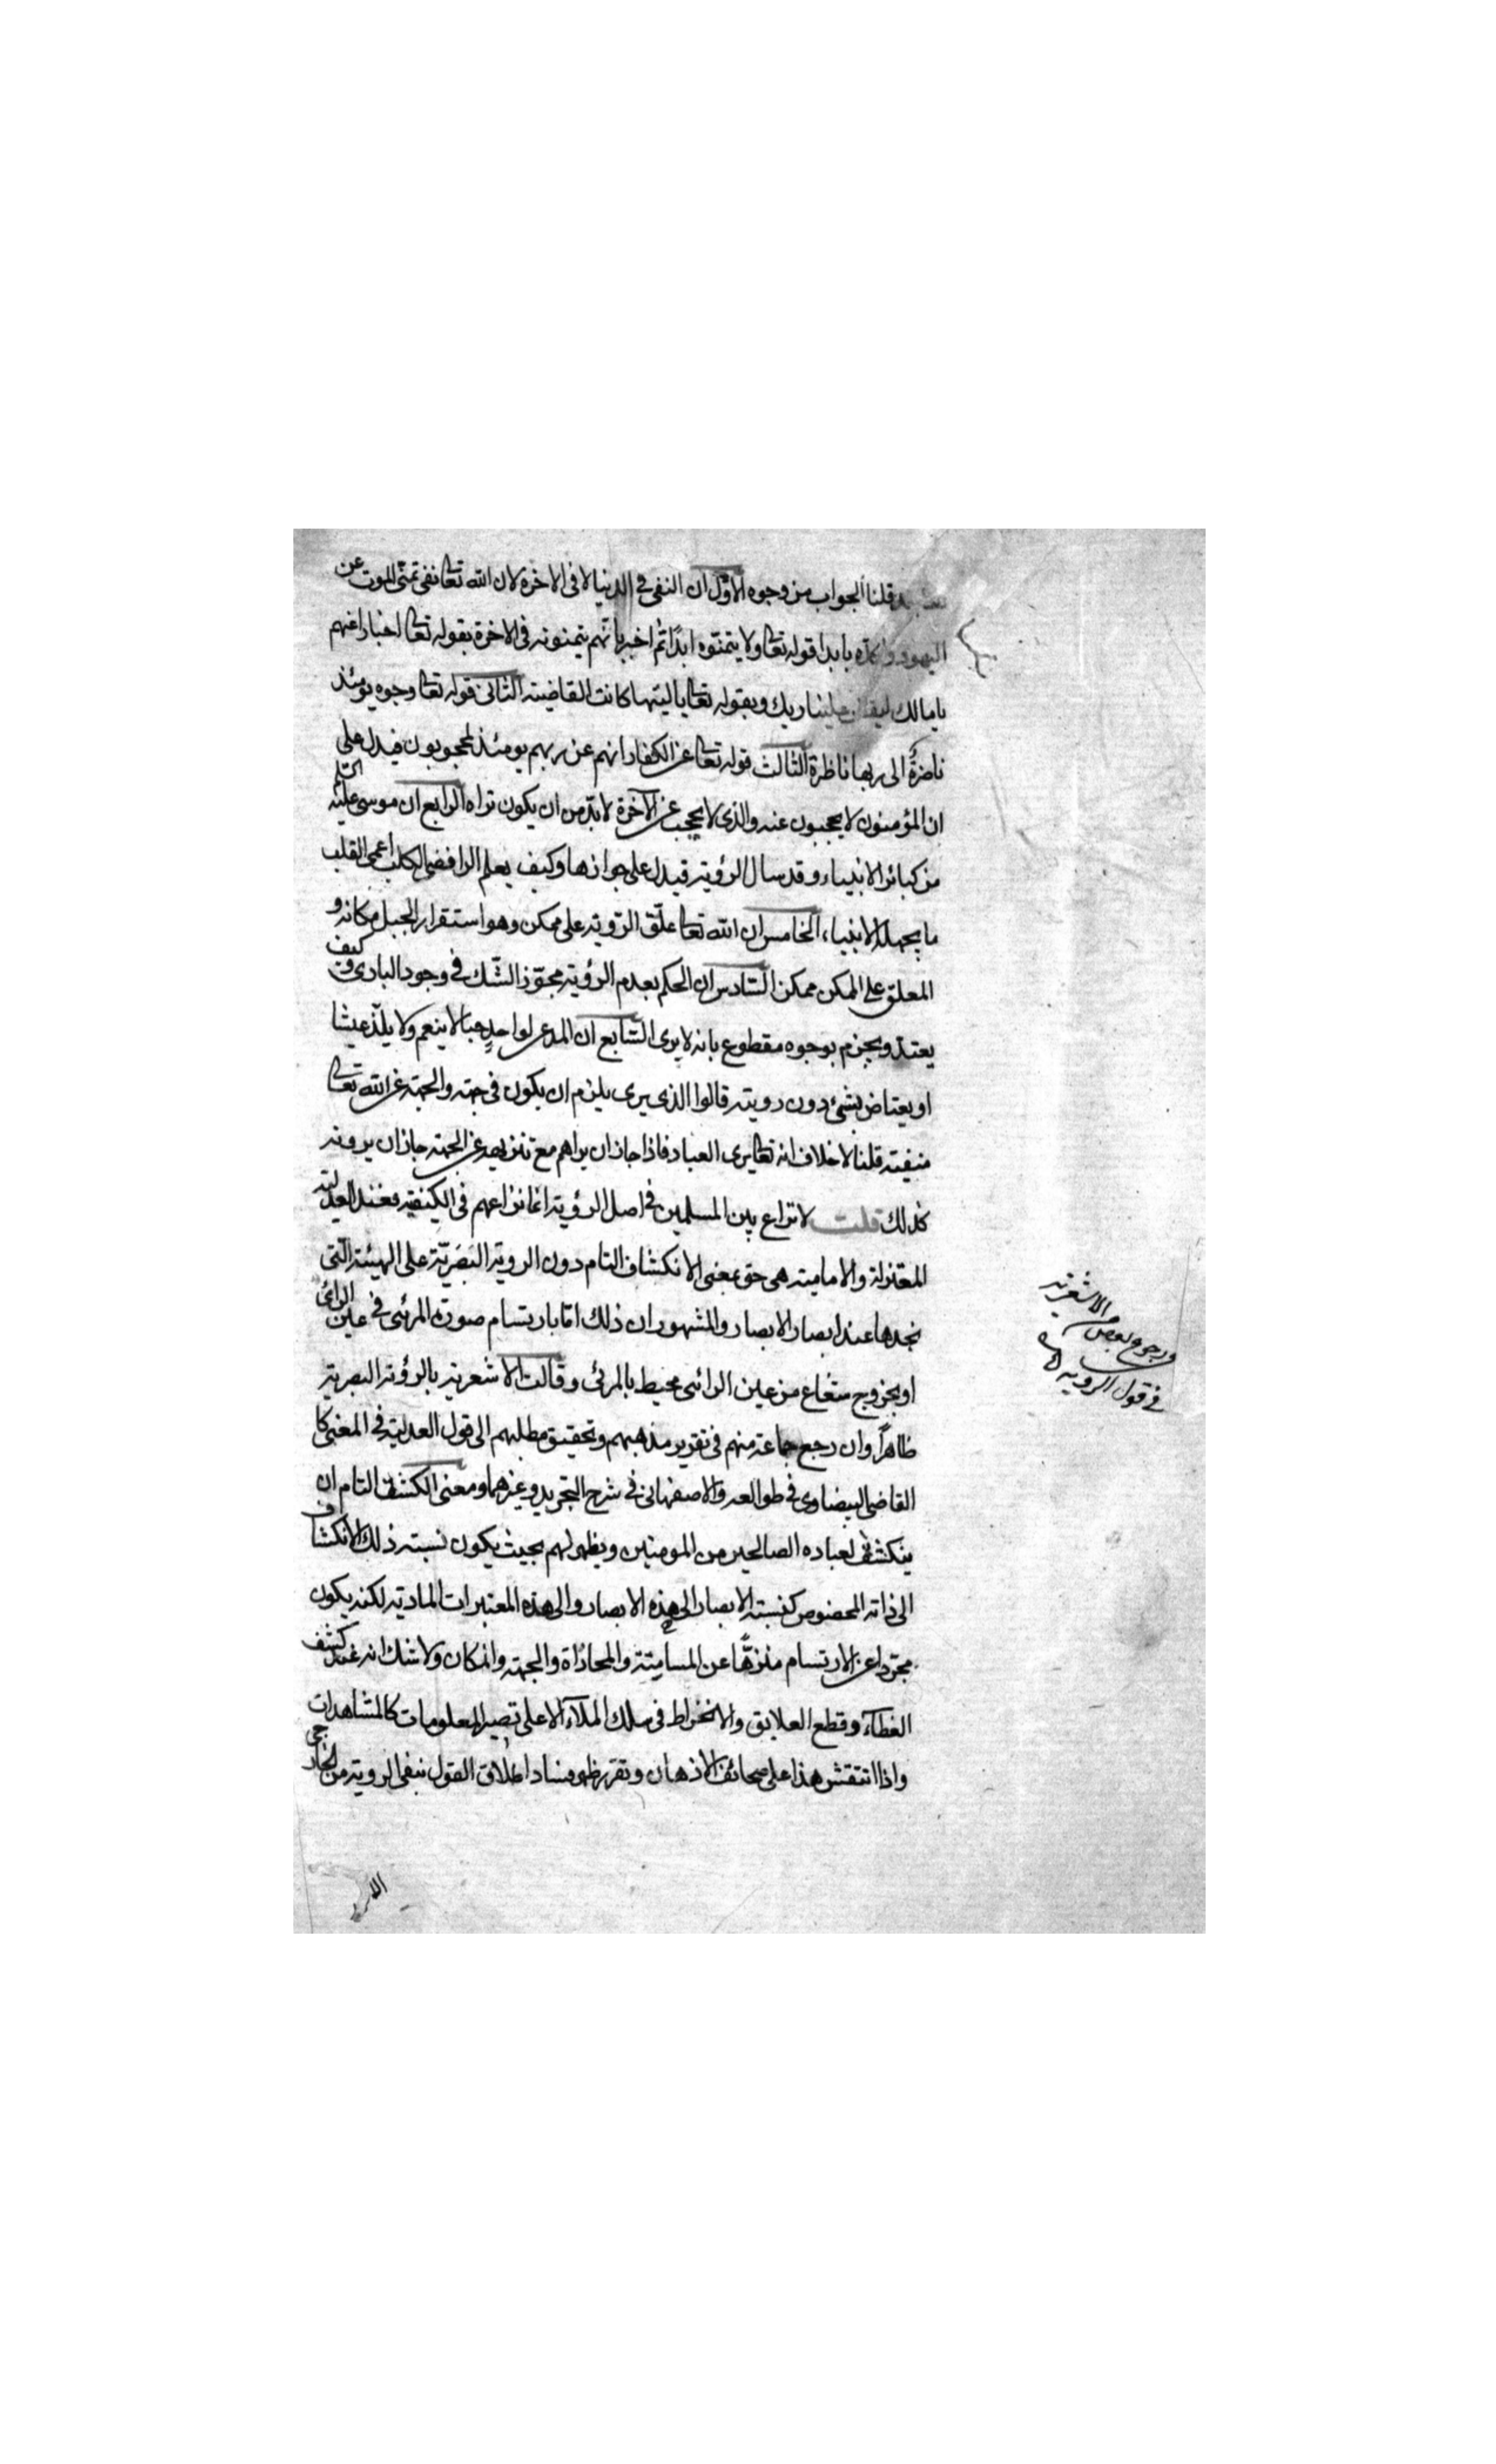 قلنا الجواب من وجوه الاوّل ان النفى فى الدنيا لا فى الاخرة لان الله تعا نفى تمنّى الموت عن
اليهود واكده بابدا قوله تعا ولا يتمنوه ابدًا ثم اخبر بانهم يتمنونه فى الاخرة بقوله تعا اخبارا عنهم
يا مالك ليقض علينا ربك وبقوله تعا يا ليتها كانت القاضية الثانى قوله تعا وجوه يومئذ
ناضرةٌ الى ربها ناظرة الثالث قوله تعا عن الكفار انهم عن ربهم يومئذ لمحجوبون فيدل على
ان المؤمنون لا يحجبون عنه والذى لا يحجب عن الآخرة لا بدّ من ان يكون تراه الرابع ان موسى عليه السلم
من كبائر الانبياء وقد سال الرؤية فيدل على جوازها وكيف يعلم الرافضى الكلب اعمى القلب
ما يجهله الانبياء، الخامس ان الله تعا علّق الرّوية على ممكن وهو استقرار الجبل مكانه و
المعلق على الممكن ممكن السّادس ان الحكم بعدم الرؤية مجوّز الشّك فى وجود البارى وكيف
يعتد ويجزم بوجوه مقطوع بانه لا يرى السّابع ان المدعى لواحدٍ حبا لا ينعم ولا يلذّ عيشا
او يعتاض بشئ دون رويته قالوا الذى يرى يلزم ان يكون فى جهة والجهة عن الله تعا
منفية قلنا لا خلاف انه تعا يرى العباد فاذا جاز ان يراهم مع تنزيهه عن الجهة جاز ان يرونه
كذلك قلت لا نزاع بين المسلمين فى اصل الرؤية انما نزاعهم فى الكيفية فعند العدلية
المعتزلة والامامية هى حق بمعنى الانكشاف التام دون الروية البَصَريّة على الهيئة الّتى
نجدها عند ابصار الابصار والمشهور ان ذلك امّا بارتسام صورة المرئى فى عين الرائى
او بخروج شعاع من عين الرائى محيط بالمرئى وقالت الاشعرية بالرؤية البصرية
ظاهراً وان رجع جماعة منهم فى تقرير مذهبهم وتحقيق مطلبهم الى قول العدلية فى المعنى كا
القاضى البيضاوى فى طوالعه والاصفهانى فى شرح التجريد وغيرهما ومعنى الكشف التام ان
ينكشف لعباده الصالحين من المومنين ويظهر لهم بحيث يكون نسبة ذلك الانكشاف
الى ذاته المخصوص كنسبة الابصار الى هذه الابصار والى هذه المعتبرات المادية لكنه يكون
مجرّدا عن الارتسام منزهًا عن المسامتة والمحاذاة والجهة والمكان ولا شك انه عند كشف
الغطآء وقطع العلايق والانخراط فى سلك الملآء الاعلى تصير المعلومات كالمشاهدات
واذا انتقش هذا على صحائف الاذهان وتقرر ظهر فساد اطلاق القول بنفى الروية من
ورجوع بعض الاشعرية
فى قول الروية